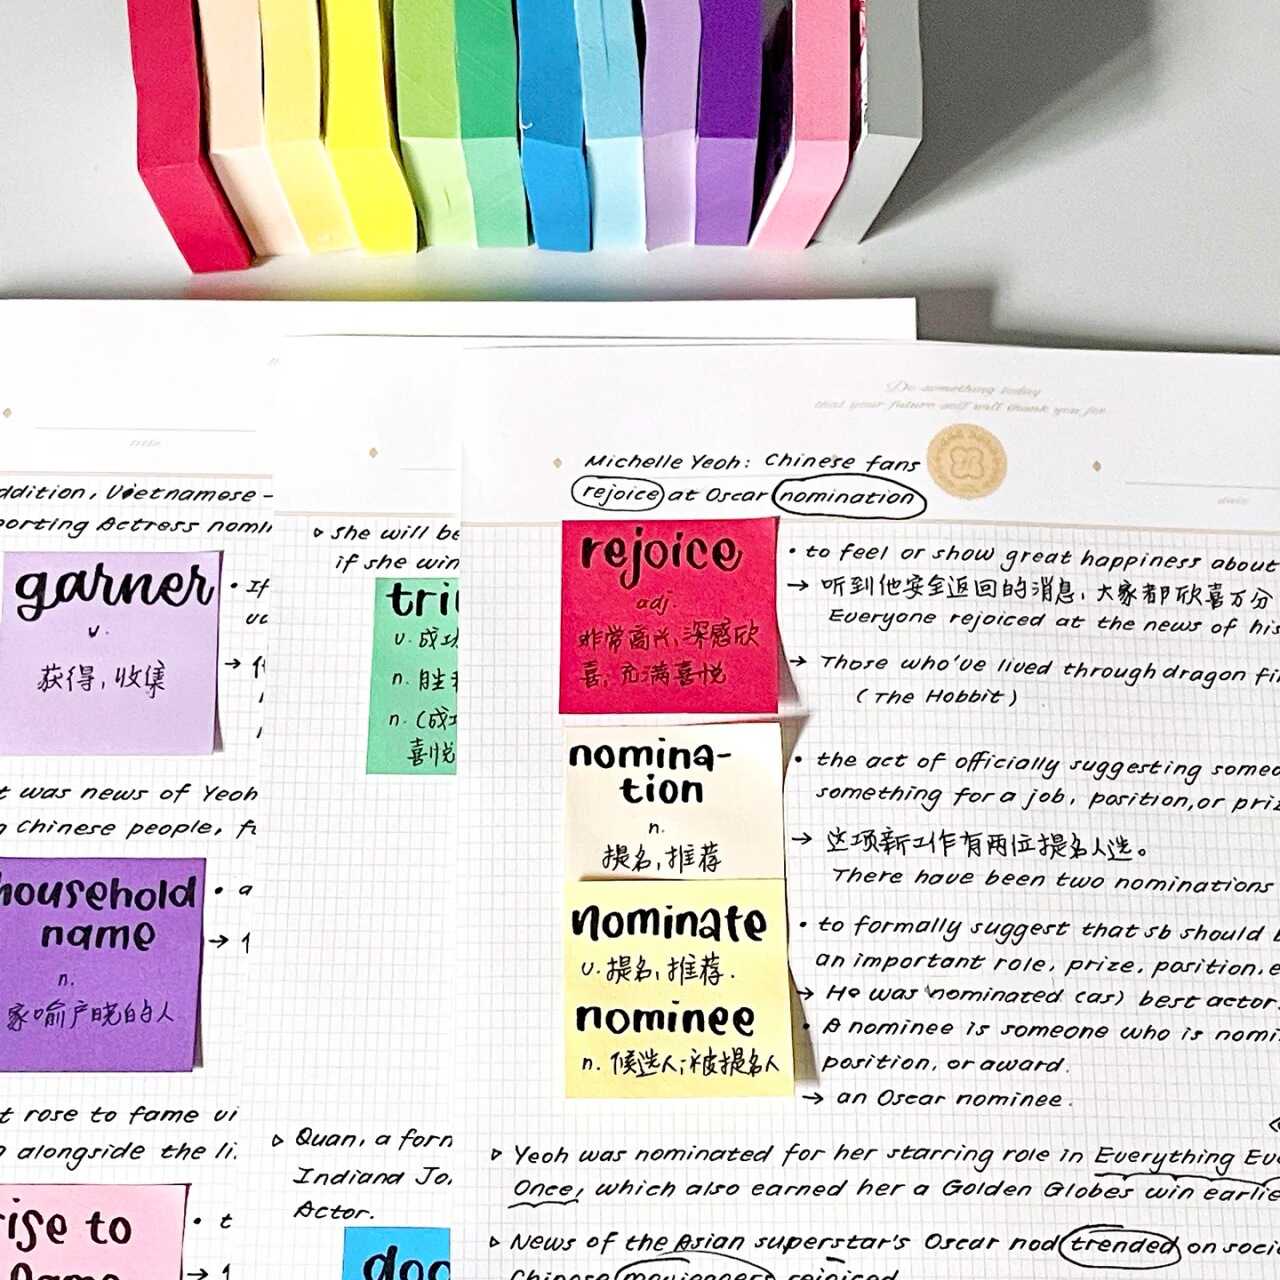 Do something today
that your future self will thank you for
title
date
ddition, Vietnamese -
porting Actress nomi
garner
v.
获得,收集
• If
→
t was news of Yeoh
n Chinese people, f
household
name
n.
家喻户晓的人
• a
→ 1
t rose to fame vi
alongside the li.
rise to
fame
• t
→ 1
▹ she will be
if she win
tri
v. 成功
n. 胜利
n. (成功
喜悦
▹ Quan, a form
Indiana Jo
Actor.
doc
Michelle Yeoh: Chinese fans
rejoice at Oscar nomination
rejoice
adj.
非常高兴,深感欣
喜;充满喜悦
• to feel or show great happiness about
→ 听到他安全返回的消息,大家都欣喜万分
Everyone rejoiced at the news of his
→ Those who've lived through dragon fi
(The Hobbit)
nomina-
tion
n.
提名,推荐
• the act of officially suggesting someo
something for a job, position, or priz
→ 这项新工作有两位提名人选。
There have been two nominations
nominate
v. 提名,推荐.
nominee
n. 候选人;被提名人
• to formally suggest that sb should b
an important role, prize, position, e
→ He was nominated (as) best actor
• A nominee is someone who is nomi
position, or award.
→ an Oscar nominee.
▹ Yeoh was nominated for her starring role in Everything Eve
Once, which also earned her a Golden Globes win earlie
▹ News of the Asian superstar's Oscar nod trended on soci
Chinese moviegoers rejoiced